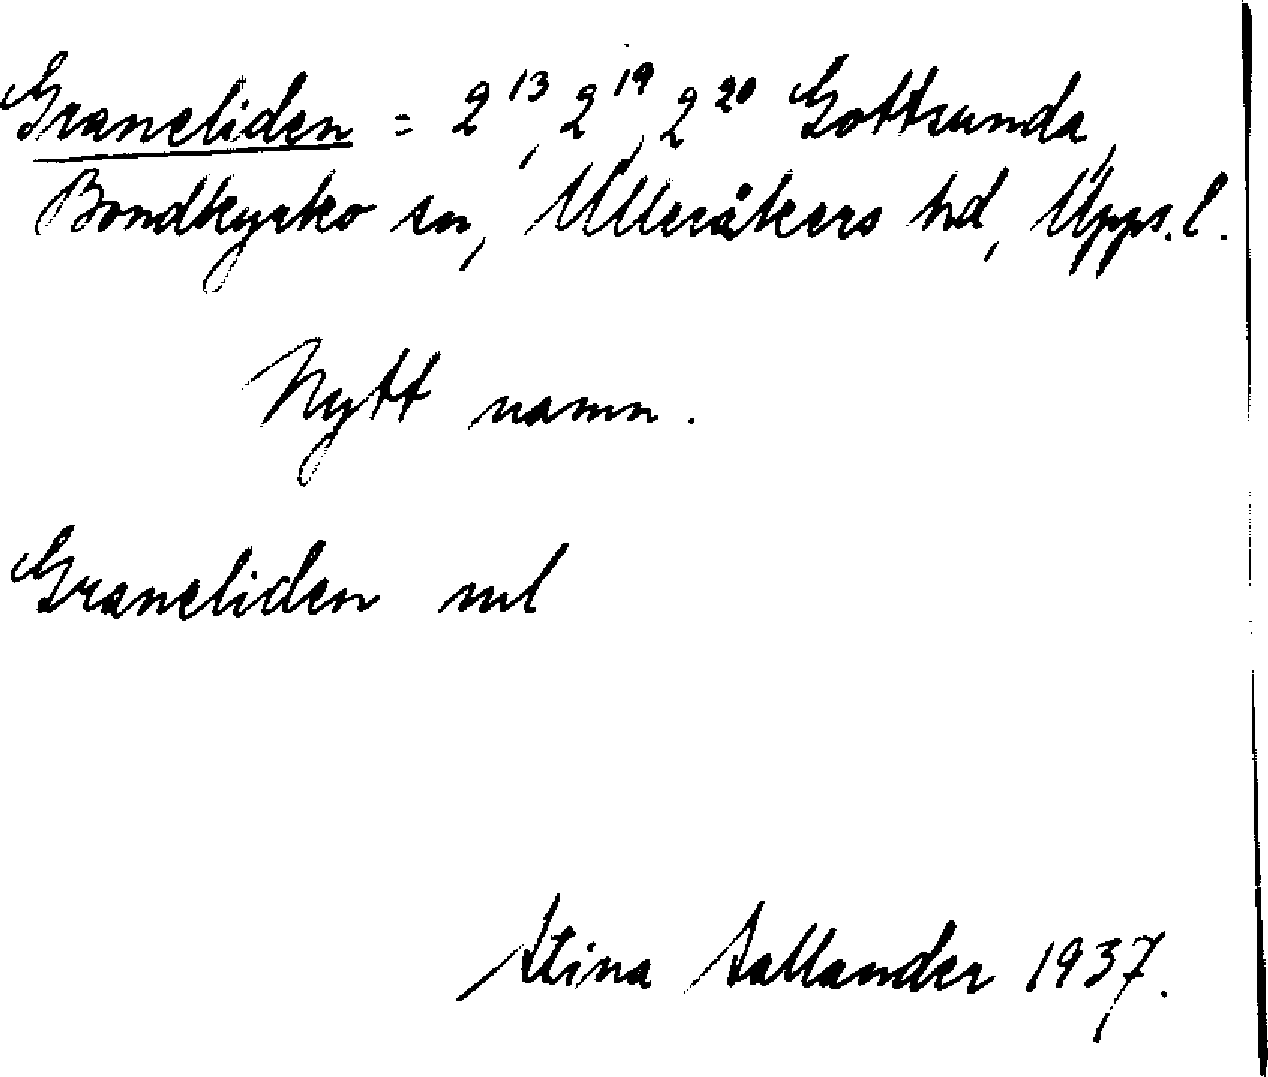 Graneliden = 2¹³, 2¹⁹, 2²⁰ Gottsunda,
Bondkyrko sn, Ulleråkers hd, Upps. l.
Nytt namn.
Graneliden ml
Stina Sallander 1937.